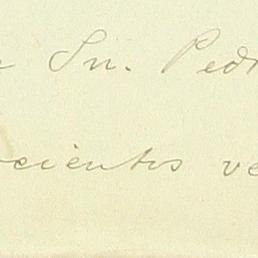 Sn. Ped
cientos ve